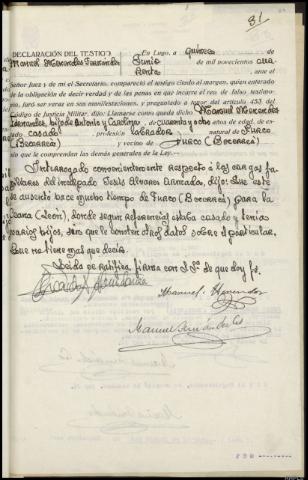 81
DECLARACIÓN DEL TESTIGO
Manuel Menendez Fernandez
En Lugo, a quince
de Junio
de mil novecientos cua
renta
, ante el
Señor Juez y de mí el Secretario, compareció el testigo citado al margen, quien enterado
de la obligación de decir verdad y de las penas en que incurre el reo de falso testimo-
nio, juró ser veraz en sus manifestaciones, y preguntado a tenor del artículo 453 del
Código de Justicia Militar, dijo: Llamarse como queda dicho Manuel Menendez
Fernandez, hijo de Antonio y Carolina, de cuarenta y ocho años de edad, de es-
tado casado, profesión labrador, natural de
(Becerreá) y vecino de (Becerreá)
sin que le comprendan las demás generales de la Ley.
Interrogado convenientemente respecto a los cargos fa-
miliares del inculpado Jesús Alvarez, dijo: Que este
se ausentó hace mucho tiempo de (Becerreá) para la
(León), donde según referencias estaba casado y tenía
varios hijos, sin que le consten otros datos sobre el particular.
Que no tiene más que decir.
Leída se ratifica, firma con S.Sª de que doy fe.
Manuel Menendez
Manuel